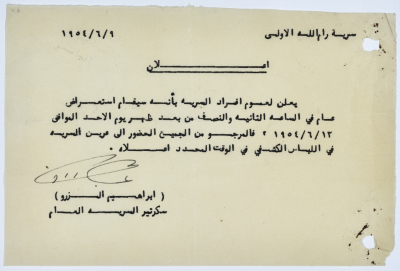 سرية رام الله الاولى
١٩٥٤/٦/٩
اعـــلان
يعلن لعموم افراد السريه بأنه سيقام استعراض
عام في الساعة الثانيه والنصف من بعد ظهر يوم الاحد الموافق
١٩٥٤/٦/١٣ ؟ فالمرجو من الجميع الحضور الى عرين السريه
في اللباس الكشفي في الوقت المحدد اعلاه ٠
( ابراهيم البزرو )
سكرتير السريه العام